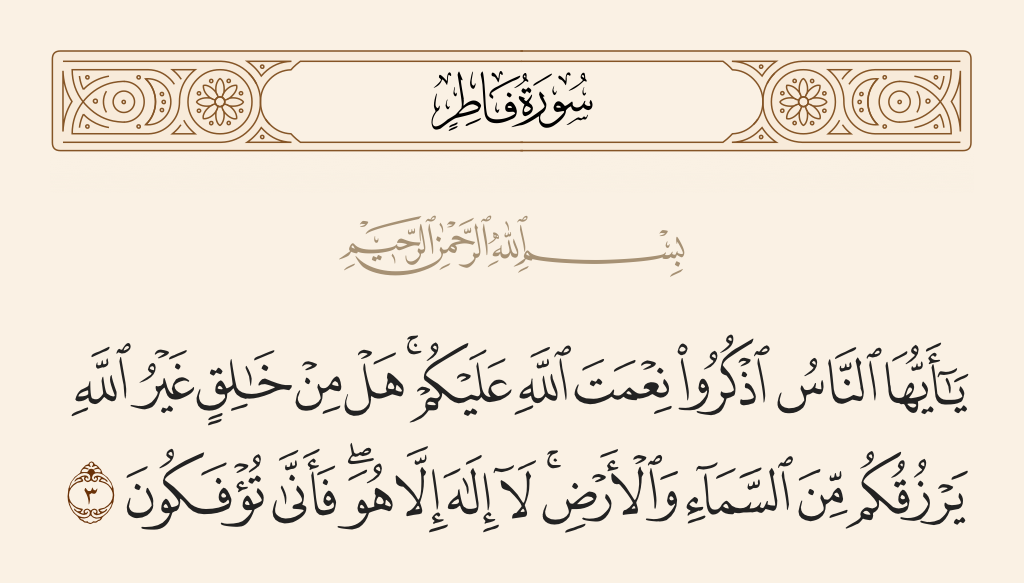 سُورَةُ فَاطِرٍ
بِسْمِ ٱللَّهِ ٱلرَّحْمَٰنِ ٱلرَّحِيمِ
يَـٰٓأَيُّهَا ٱلنَّاسُ ٱذْكُرُوا۟ نِعْمَتَ ٱللَّهِ عَلَيْكُمْ ۚ هَلْ مِنْ خَـٰلِقٍ غَيْرُ ٱللَّهِ
يَرْزُقُكُم مِّنَ ٱلسَّمَآءِ وَٱلْأَرْضِ ۚ لَآ إِلَـٰهَ إِلَّا هُوَ ۖ فَأَنَّىٰ تُؤْفَكُونَ ٣